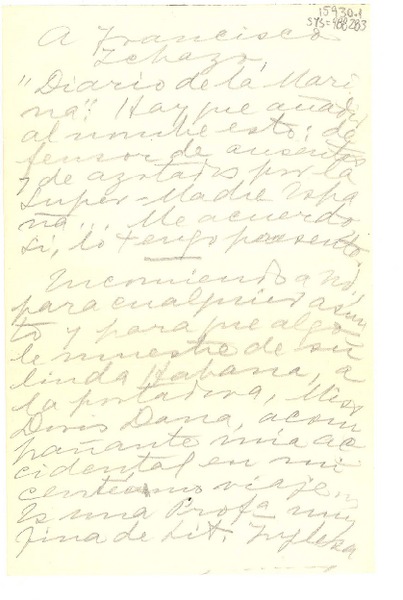 15930.1
A Francisco
Ichazo,
"Diario de la Mari
na". Hay que añadir
al nombre esto: de
fensor de ausentes
y de azotados por la
Super-Madre Espa
ña... Me acuerdo
sí, lo tengo presente.
Encomiendo a Ud
para cualquier asun
to y para que algo
le muestre de su
linda Habana, a
la portadora, Miss
Doris Dana, acom
pañante mía ac
cidental en mi
viaje
Es una Profa muy
fina de Lit. Inglesa